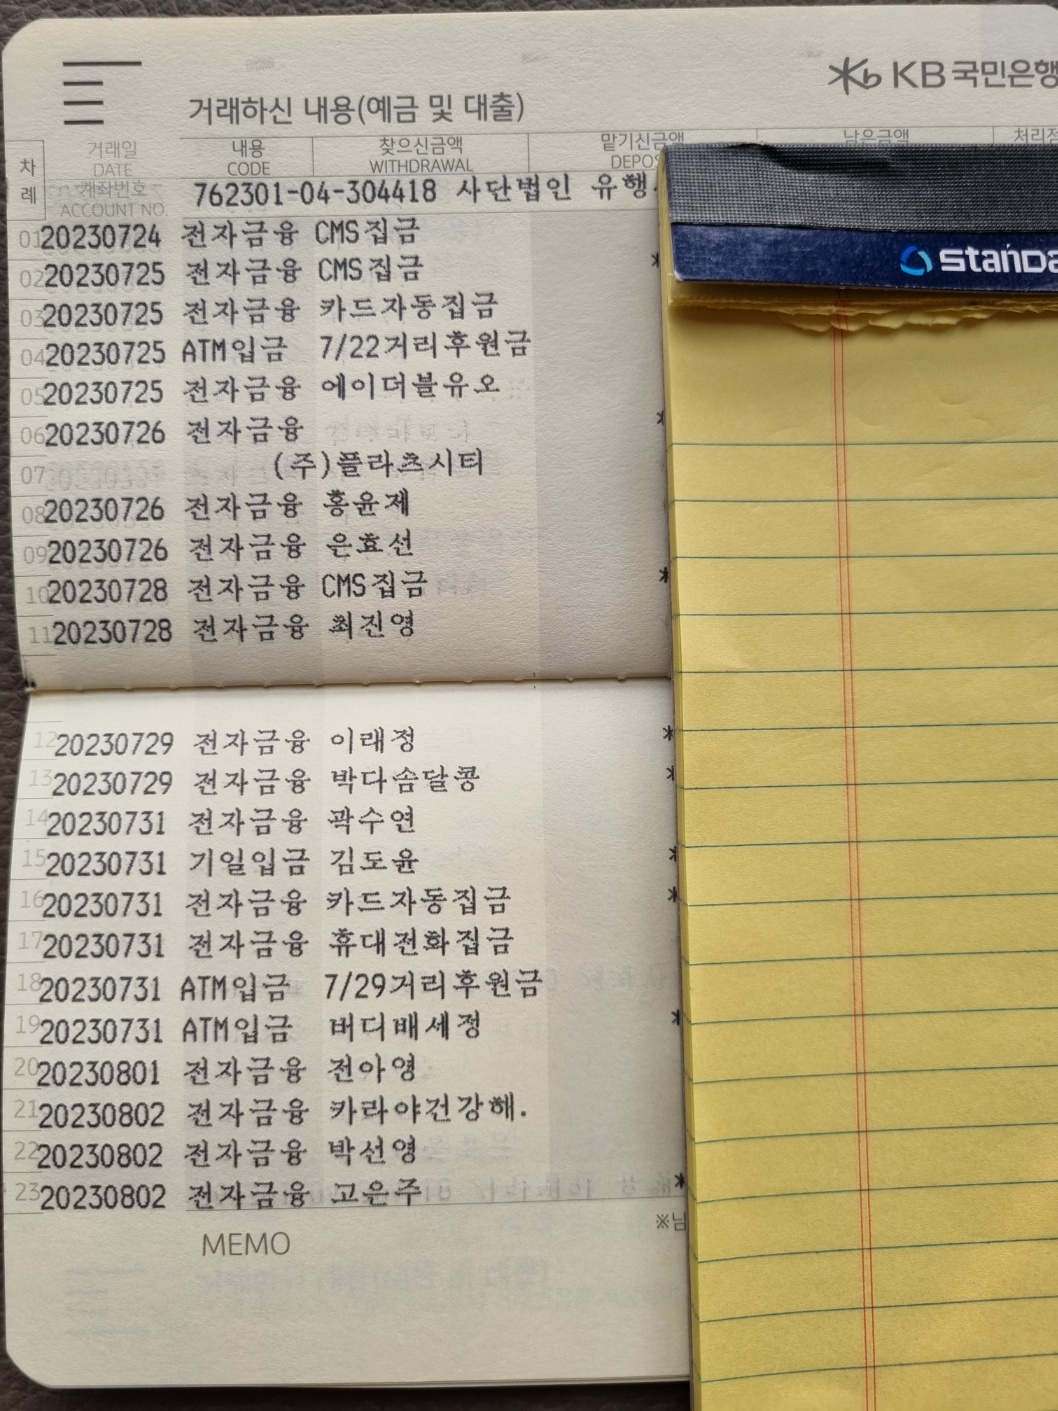 KB국민은행
거래하신 내용(예금 및 대출)
차례 거래일 내용 찾으신금액 맡기신금액 남은금액
DATE CODE WITHDRAWAL
계좌번호 ACCOUNT NO. 762301-04-304418 사단법인 유행
01 20230724 전자금융 CMS집금
02 20230725 전자금융 CMS집금
03 20230725 전자금융 카드자동집금
04 20230725 ATM입금 7/22거리후원금
05 20230725 전자금융 에이더블유오
06 20230726 전자금융
07 (주)플라츠시티
08 20230726 전자금융 홍윤제
09 20230726 전자금융 은효선
10 20230728 전자금융 CMS집금
11 20230728 전자금융 최진영
12 20230729 전자금융 이래정
13 20230729 전자금융 박다솜달콩
14 20230731 전자금융 곽수연
15 20230731 기일입금 김도윤
16 20230731 전자금융 카드자동집금
17 20230731 전자금융 휴대전화집금
18 20230731 ATM입금 7/29거리후원금
19 20230731 ATM입금 버디배세정
20 20230801 전자금융 전아영
21 20230802 전자금융 카라야건강해.
22 20230802 전자금융 박선영
23 20230802 전자금융 고은주
MEMO